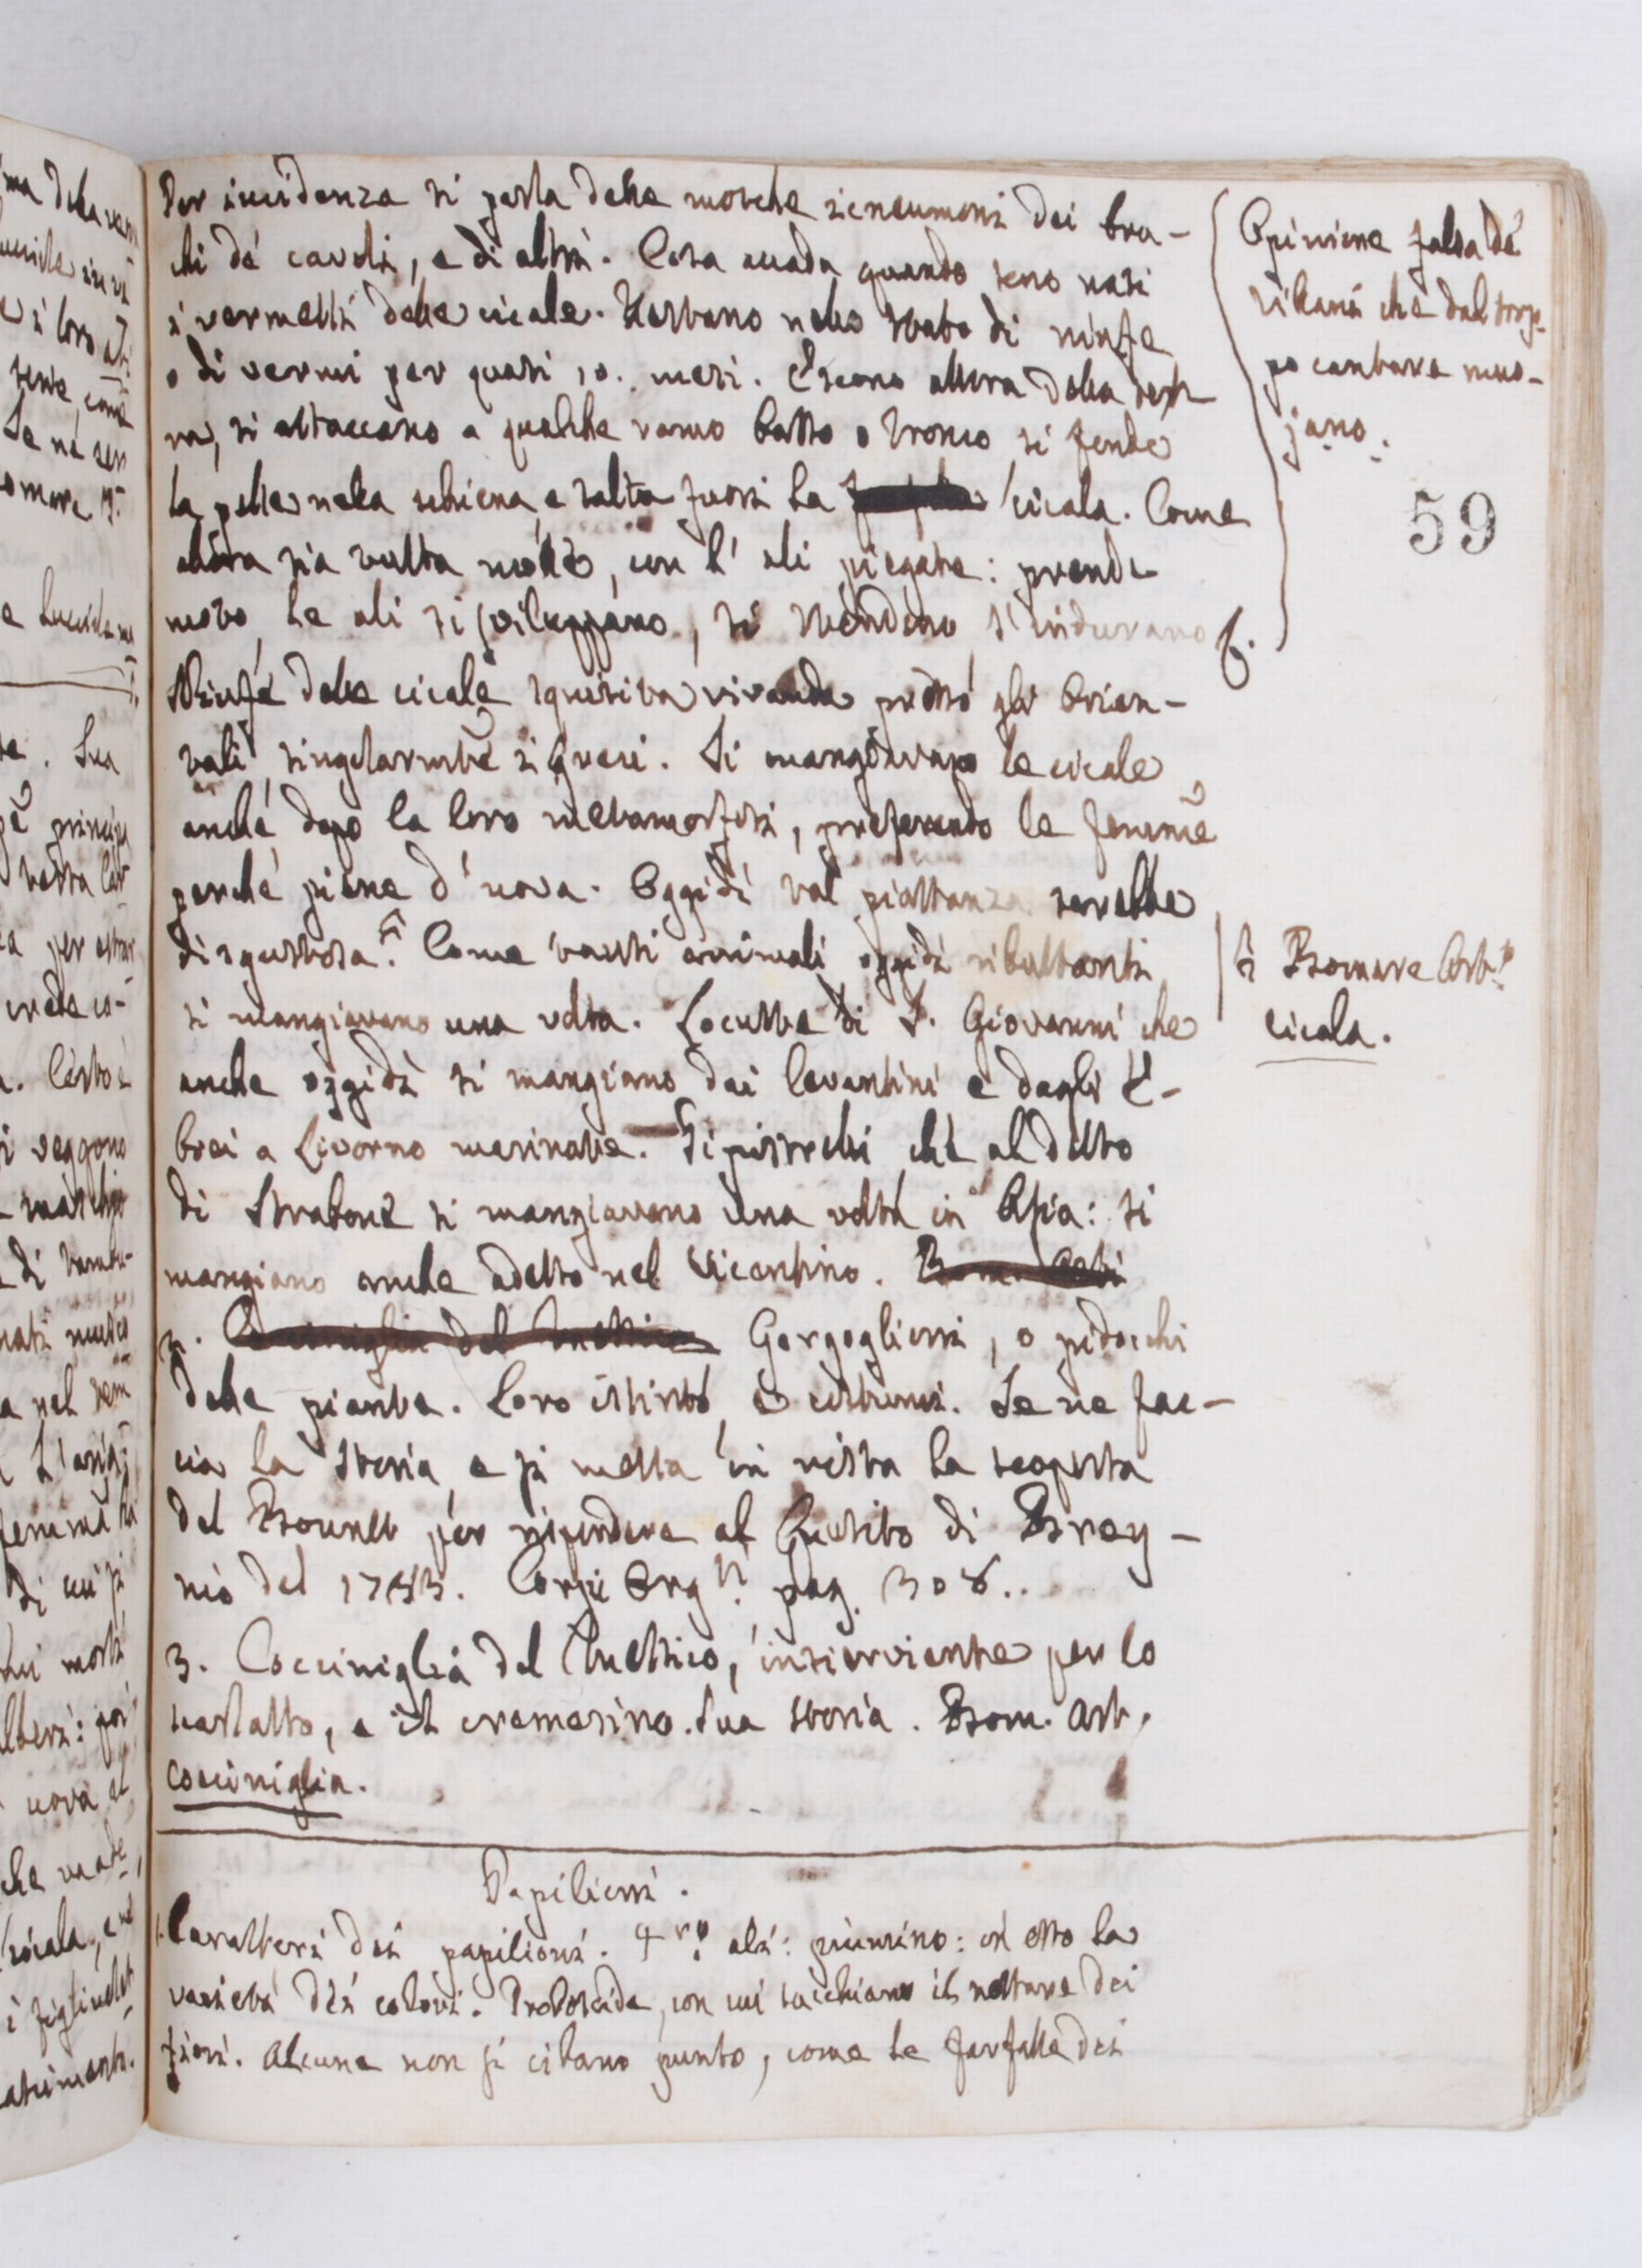 Per incidenza si parla delle mosche icneumoni dei bru-
chi de' cavoli, e di altri. Cosa accada quando sono nati
i vermetti delle cicale. Restano nello stato di ninfe
o di vermi per quasi 10. mesi. Escono allora dalla ter-
ra, si attaccano a qualche ramo basso o tronco si fende
la pelle nella schiena, e salta fuori la cicala. Come
allora sia tutta molle, con l' ali piegate: prende
moto le ali si sviluppano, si stendono s' indurano
Ninfe delle cicale squisita vivanda presso gli Orien-
tali, singolarmte i Greci. Si mangiavano le cicale
anche dopo la loro metamorfosi, preferendo le femine
perché piene d' uova. Oggidì tal piattanza sarebbe
disgustosa. Come tanti animali oggidì ributtanti
si mangiavano una volta. Locuste di S. Giovanni che
anche oggidì si mangiano dai levantini e dagli E-
brei a Livorno marinate. che al detto
di Strabone si mangiavano una volta in Asia: si
mangiano anche adesso nel Vicentino.
2. Gorgoglioni, o pidocchi
delle piante. Loro istinto e costumi. Se ne fac-
cia la storia e si metta in vista la scoperta
del Bounet per rispondere al Quesito di Brey-
nio del 1743. Corpi Orgni pag. 308..
3. Cocciniglia del Messico, inserviente per lo
scarlatto, e il cremesino. Sua storia. Bom. Art.
Cocciniglia.
Papilioni.
1. Caratteri dei papilioni. 4ro ali: piumino: in esso la
varietà dei colori. Proboscide, con cui succhiano il nettare dei
fiori. Alcune non si cibano punto, come le farfalle dei
Opinione falsa de'
villani che dal trop-
po cantare muo-
jano.
59
Bomare Arto
Cicala.